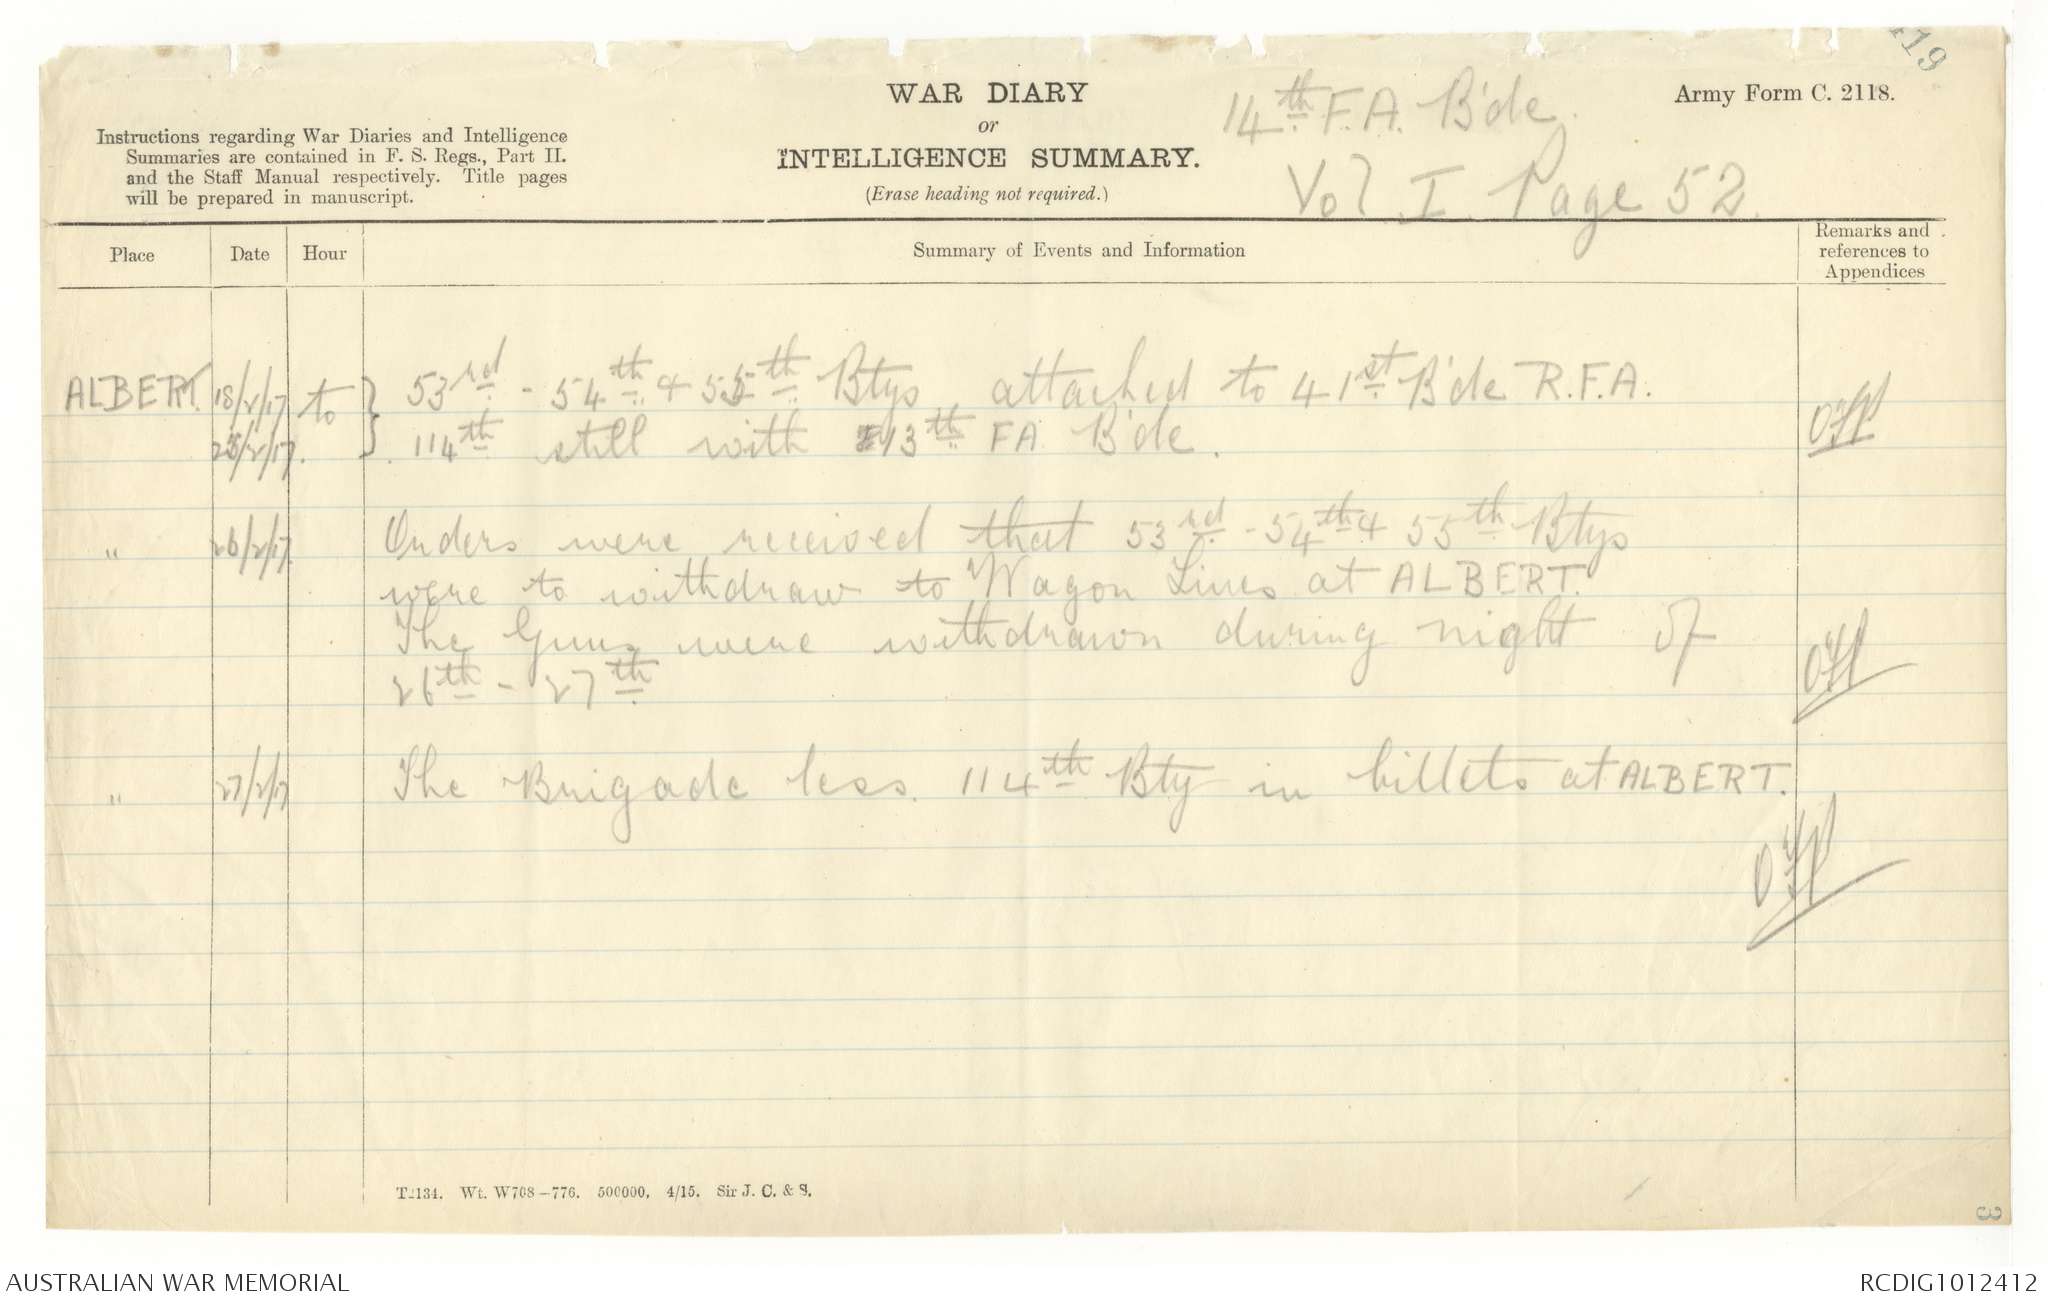 419
WAR DIARY
or
INTELLIGENCE SUMMARY.
(Erase heading not required.)
14th F.A. B'de.
Vol. I. Page 52.
Army Form C. 2118.
Instructions regarding War Diaries and Intelligence
Summaries are contained in F. S. Regs., Part II.
and the Staff Manual respectively. Title pages
will be prepared in manuscript.
Place Date Hour Summary of Events and Information Remarks and references to Appendices
ALBERT. 18/2/17 to 53rd - 54th & 55th Btys attached to 41st B'de R.F.A.
25/2/17. 114th still with 13th FA B'de.
" 26/2/17. Orders were received that 53rd - 54th & 55th Btys
were to withdraw to Wagon Lines at ALBERT.
The Guns were withdrawn during night of
26th - 27th
" 27/2/17 The Brigade less 114th Bty in billets at ALBERT.
T2134. Wt. W708-776. 500000. 4/15. Sir J. C. & S.
3
AUSTRALIAN WAR MEMORIAL
RCDIG1012412